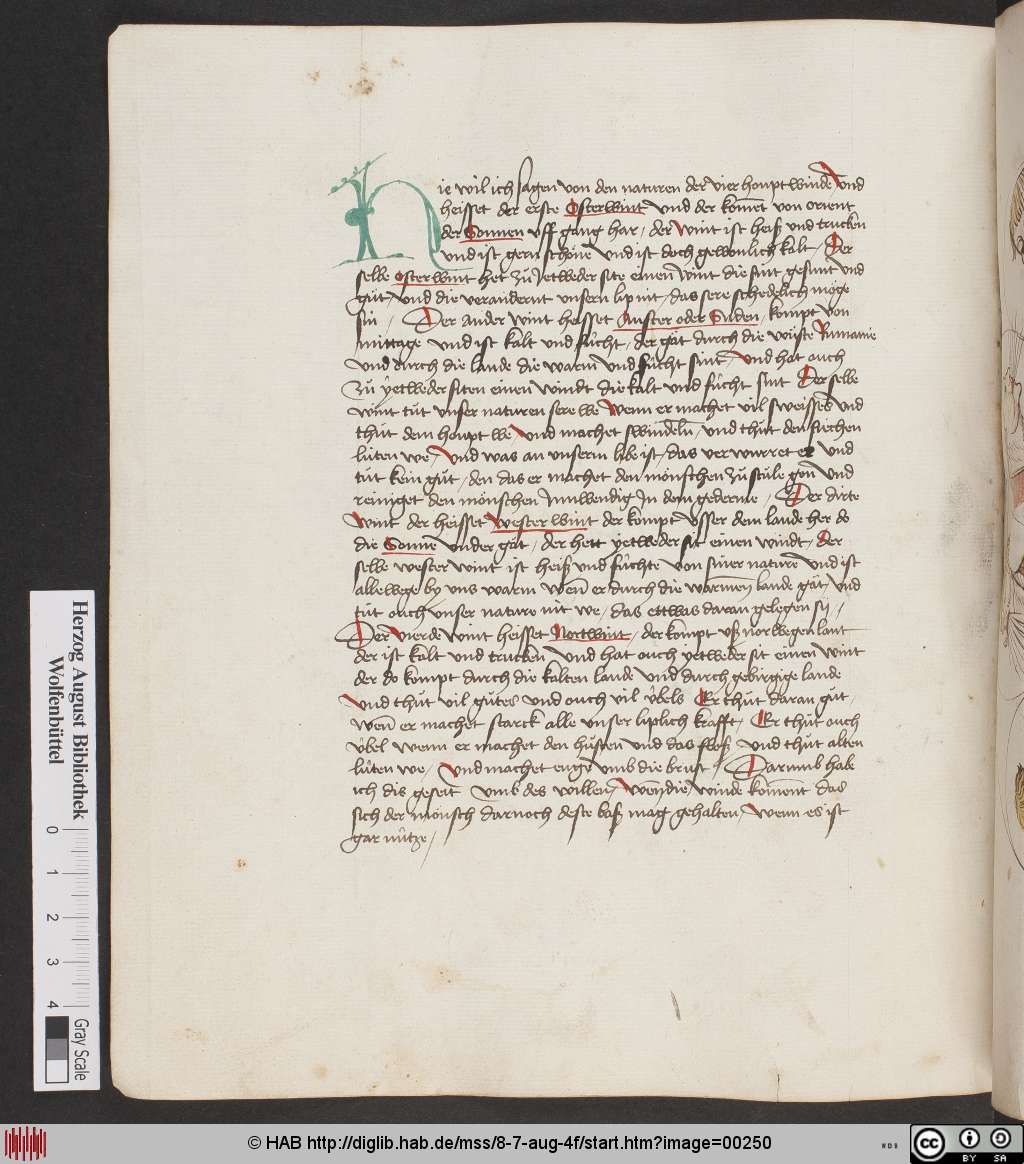 Hie wil ich sagen von den naturen der vier houpt winde Vnd
heisset der erste Osterwint vnd der kom̄et von orient
der Sonnen vff gang har / der wint ist heiß vnd trucken
vnd ist gern schöne vnd ist doch gewonlich kalt / Der
selbe osterwint het zu Jetweder site einen wint die sint gesunt vnd
gůt / vnd die verandernt vnsern lip nit / das sere schedelich möge
sin / Der ander wint heisset Auster oder Suden / kompt von
mittage vnd ist kalt vnd fücht / der gat durch die wüste Rumanie
vnd durch die lande die warm vnd fücht sint / vnd hat ouch
zů yetweder siten einen windt die kalt vnd fücht sint Der selbe
wint tůt vnser naturen sere we Wenn er machet vil sweisses vnd
thůt dem houpt we / vnd machet swindeln / vnd thůt den siechen
lüten we / Vnd was an vnserm libe ist / das verwurret er vnd
tůt kein gůt / den das er machet den mönschen zu stůle gon vnd
reiniget den mönschen Innwendig In dem gederme / Der dirte
Wint der heisset Wester wint der kompt vsser dem lande her do
die Sonne vnder gat / der hett yetweder sit einen windt / Der
selbe wester wint ist heiß vnd füchte von siner nature vnd ist
allewege by vns warm Wen̄ er durch die warmen lande gat / Vnd
tůt ouch vnser nature nit we / das ettwas daran gelegen sÿ /
Der Vierde wint heisset Nortwint / der kompt vß norwegen lant
der ist kalt vnd trucken vnd hat ouch yetweder sit einen wint
der do kompt durch die kalten lande vnd durch gebirgige lande
Vnd thůt vil gůtes vnd ouch vil übels Er thůt daran gůt
wen̄ er machet starck alle vnser liplich krafft / Er thůt ouch
übel wenn er machet den hůsten vnd das vnd thůt alten
lüten we / Vnd machet enge vmb die brust / Darumb hab
ich dis geseit vmb des willen / Wen̄ die winde kom̄ent das
sich der mönsch darnoch deste baß mag gehalten / wenn es ist
gar nütze /
Herzog August Bibliothek
Wolfenbüttel
0 1 2 3 4
Gray Scale
© HAB http://diglib.hab.de/mss/8-7-aug-4f/start.htm?image=00250
WDB
cc BY SA